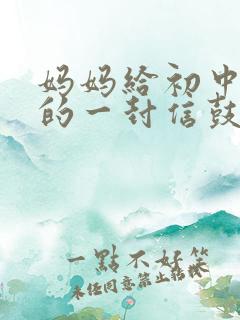 妈妈给初中
的一封信鼓
一點不好笑
未经同意禁止转载